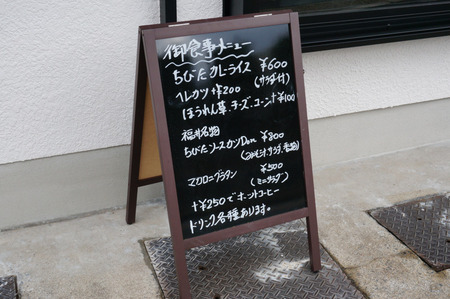 御食事メニュー
ちびたカレーライス ¥600
(サラダ付)
ヘレカツ +¥200
ほうれん草、チーズ、コーン+¥100
福井名物
ちびたソースカツDon ¥800
サラダ
マカロニグラタン ¥500
(ミニサラダ)
+¥250でホットコーヒー
ドリンク各種あります。